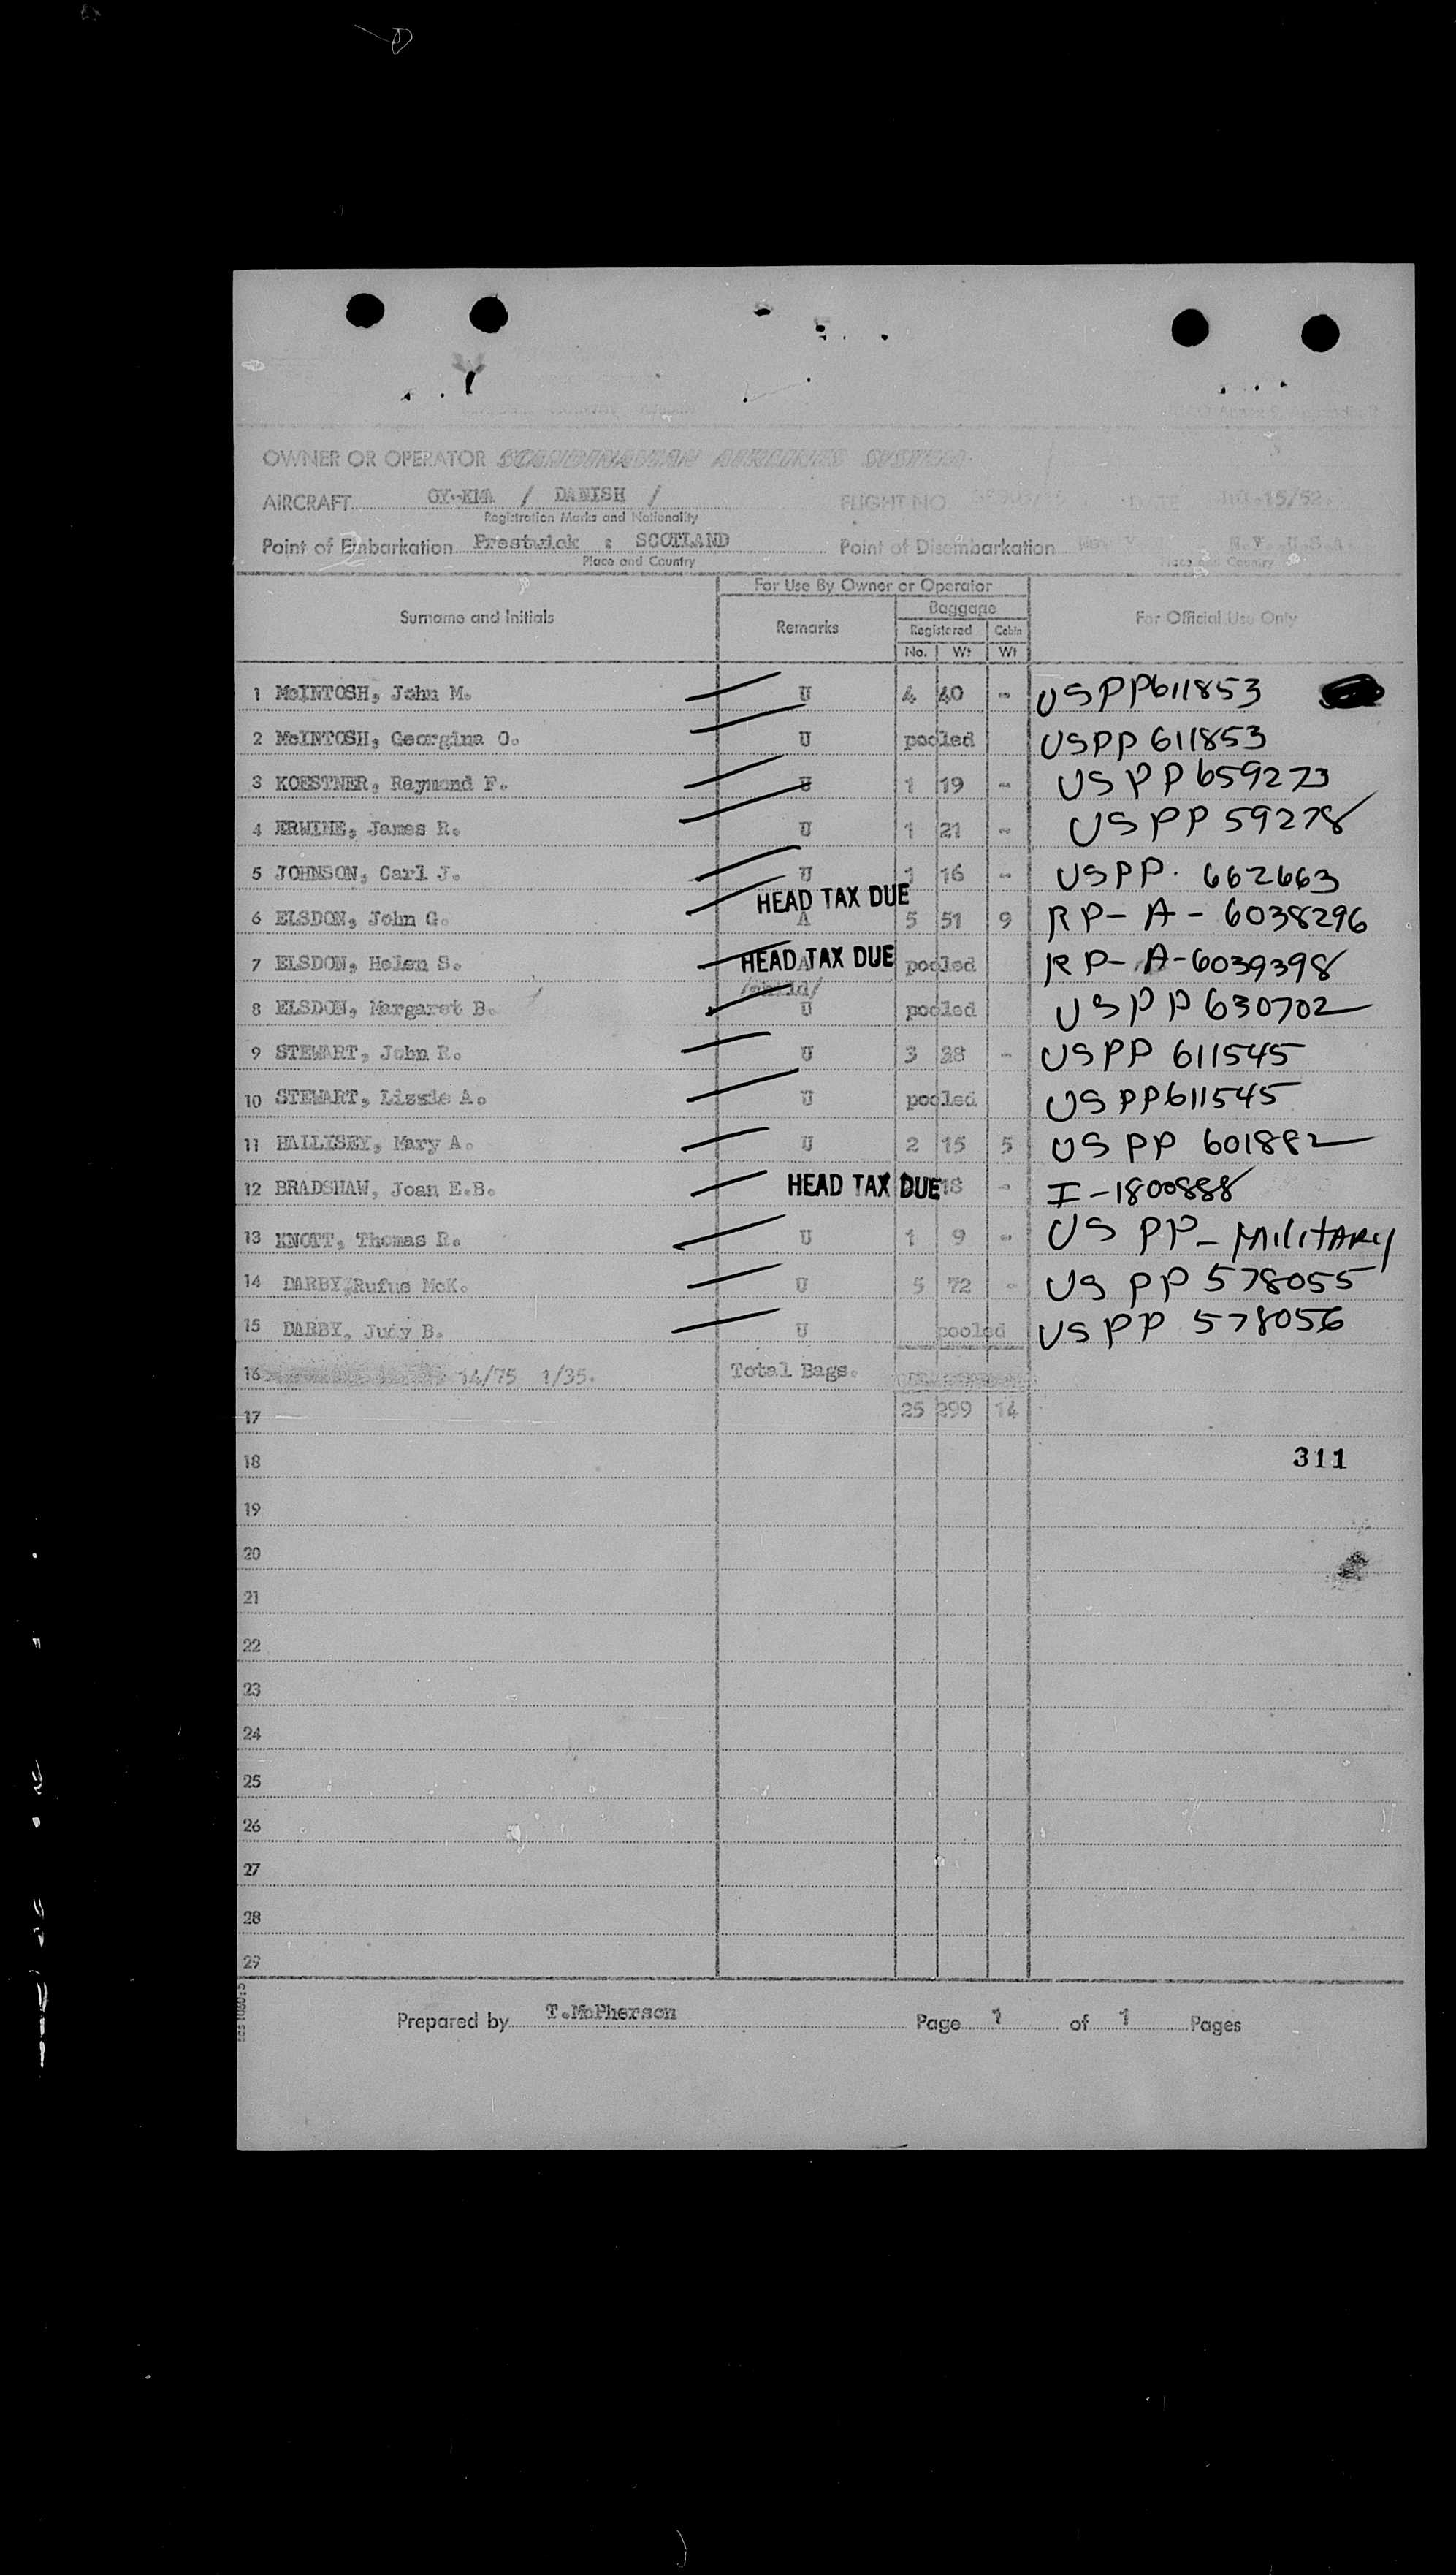 OWNER OR OPERATOR SCANDINAVIAN AIRLINES SYSTEM
AIRCRAFT / DANISH / FLIGHT NO DATE 15/52
Registration Marks and Nationality
Point of Embarkation Prestwick : SCOTLAND Point of Disembarkation N.Y. U.S.A.
Place and Country Place and Country
For Use By Owner or Operator
Surname and Initials Remarks Baggage For Official Use Only
Registered Cabin
No. Wt Wt
1 McINTOSH, John M. U 4 40 - USPP611853
2 McINTOSH, Georgina O. U pooled USPP 611853
3 KOESTNER, Raymond F. U 1 19 - USPP 659273
4 ERWINE, James R. U 1 21 - USPP 59278
5 JOHNSON, Carl J. U 1 16 - USPP. 662663
HEAD TAX DUE
6 ELSDON, John G. A 5 51 9 RP-A-6038296
7 ELSDON, Helen S. HEAD TAX DUE pooled RP-A-6039398
/child/
8 ELSDON, Margaret B. U pooled USPP 630702
9 STEWART, John R. U 3 38 - USPP 611545
10 STEWART, Lizzie A. U pooled USPP611545
11 HALLISEY, Mary A. U 2 15 5 US PP 601882
12 BRADSHAW, Joan E.B. HEAD TAX DUE 18 - I-1800888
13 KNOTT, Thomas R. U 1 9 - US PP- MILITARY
14 DARBY, Rufus McK. U 5 72 - US PP 578055
15 DARBY, Judy B. U pooled USPP 578056
16 14/75 1/35. Total Bags.
17 25 299 14
18 311
19
20
21
22
23
24
25
26
27
28
29
Prepared by T.McPherson Page 1 of 1 Pages